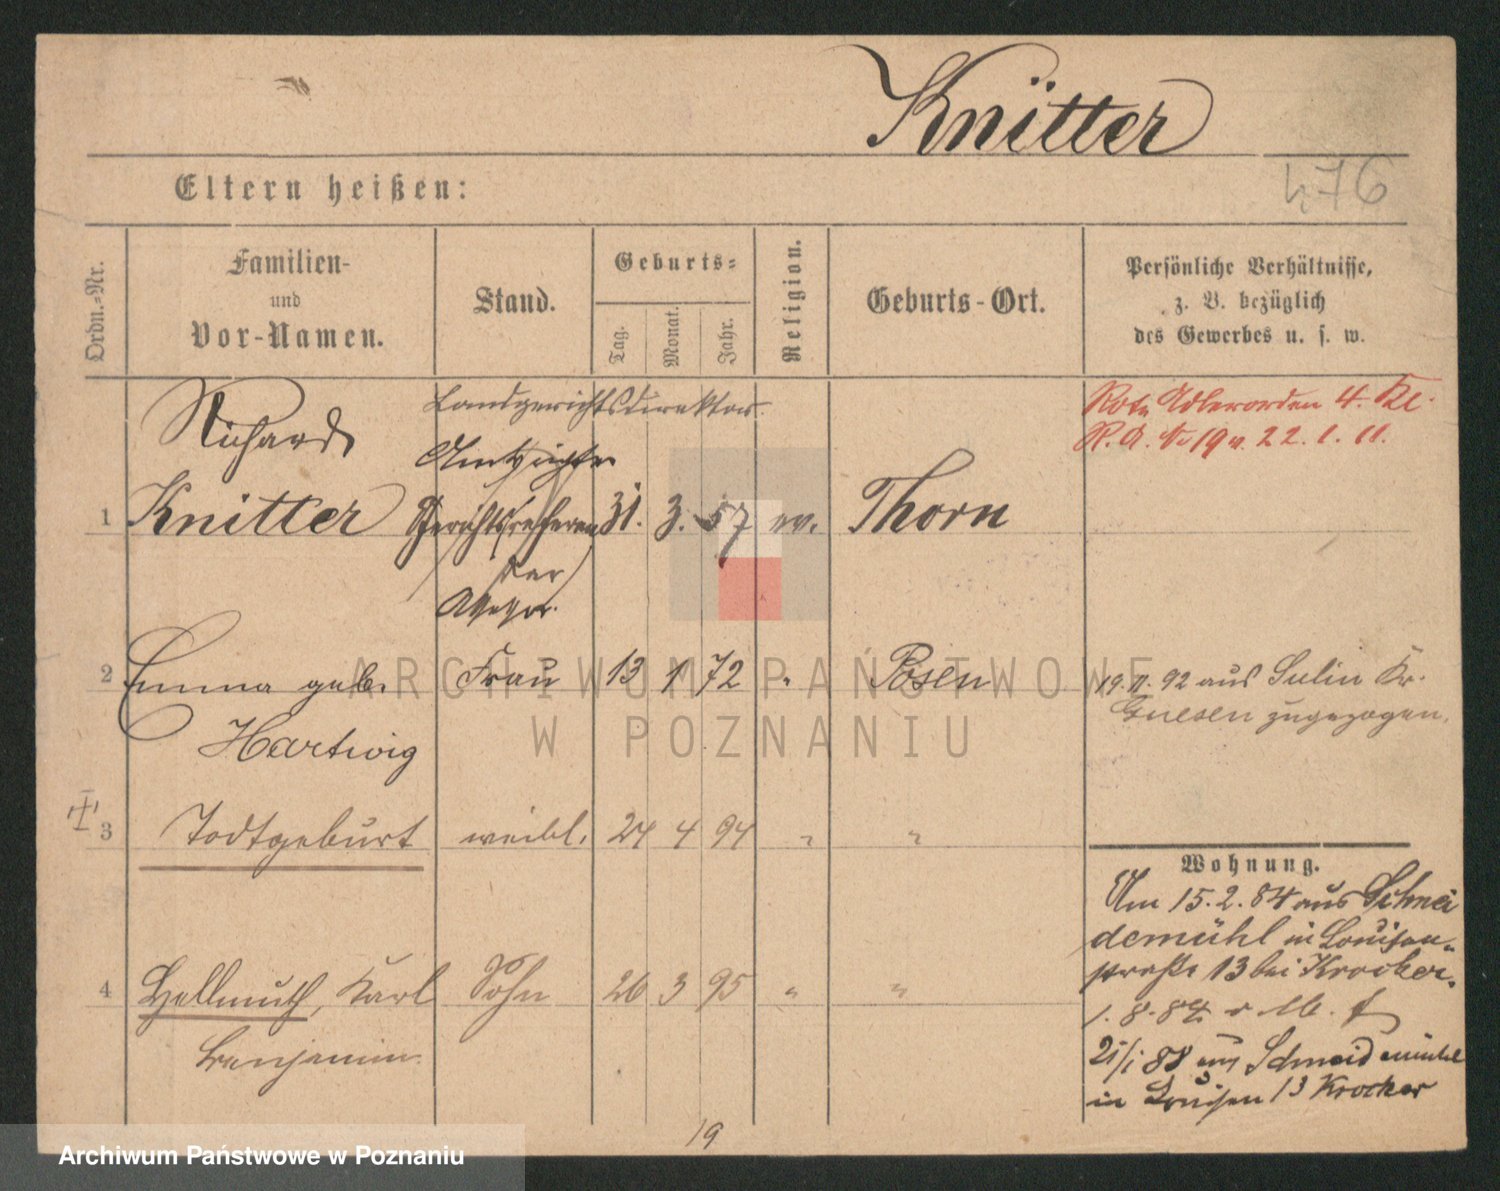 Knitter
476
Eltern heißen:
Ordn.=Nr.
Familien-
und
Vor-Namen.
Stand.
Geburts=
Tag.
Monat.
Jahr.
Religion.
Geburts-Ort.
Persönliche Verhältnisse,
z. B. bezüglich
des Gewerbes u. s. w.
Landgerichtsdirektor.
Rote Adlerorden 4. Kl.
R. A. No 19 v. 22. 1. 11.
Richard
1 Knitter 31. 3. 57 ev. Thorn
2 Emma geb. Frau 13 1 72 " Posen
Hartwig
19. 11. 92 aus Sulin Kr.
Gnesen zugezogen.
3 Todtgeburt weibl. 24 4 94 " "
4 Hellmuth, Karl Sohn 26 3 95 " "
Benjamin
Wohnung.
Am 15. 2. 84 aus Schnei
demühl in Louisen-
straße 13 bei Krocker.
1. 8. 84
21/1 88 aus Schneidemühl
in Louisen 13 Krocker
19
ARCHIWUM PAŃSTWOWE
W POZNANIU
Archiwum Państwowe w Poznaniu